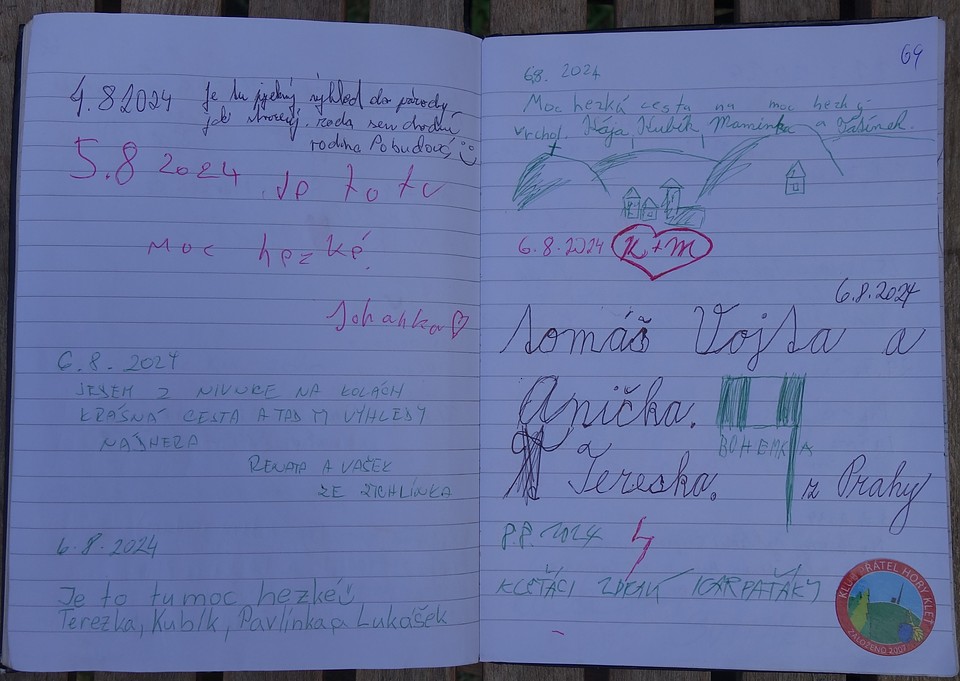 4.8 2024 Je tu pěkný výhled do přírody,
jak stvořený, rádi sem chodíme
rodina Pobudová,
5.8 2024 Je to tu
moc hezké.
Johanka
6.8. 2024
JESEM Z NIVNICE NA KOLÁCH
KRÁSNÁ CESTA A TADY VÝHLEDY
NÁDHERA
RENATA A VAŠEK
ZE
6.8.2024
Je to tu moc hezké
Terezka, Kubík, Pavlínka a Lukášek
69
6.8. 2024
Moc hezká cesta na moc hezký
vrchol. Kája, Kubík, Maminka a Tatínek.
6.8.2024 K+M
6.8.2024
Tomáš Vojta a
Anička.
BOHEMKA
a Tereska. z Prahy
8.8.2024
KLEŤÁCI ZDRAVÍ KARPAŤÁKY
KLUB PŘÁTEL HORY KLEŤ
ZALOŽENO 2007